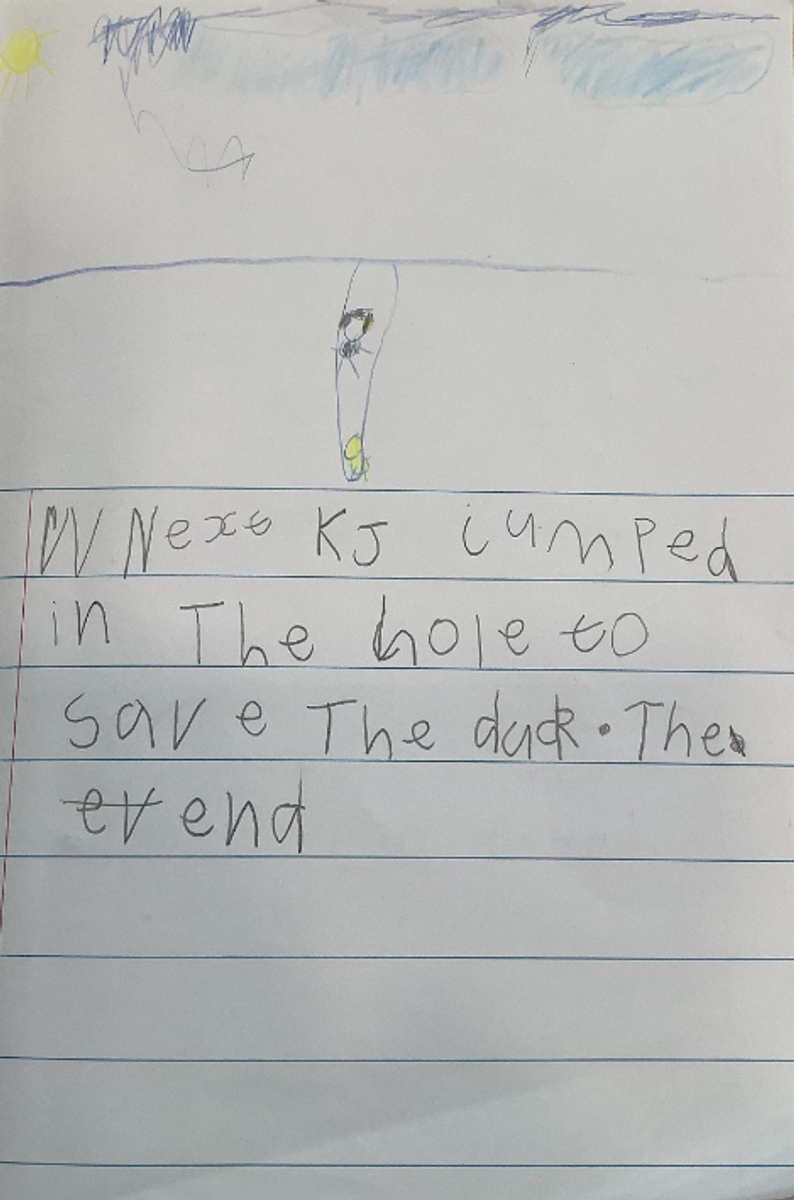 W Next KJ iumped
in The hole to
save The duck. The
ev end